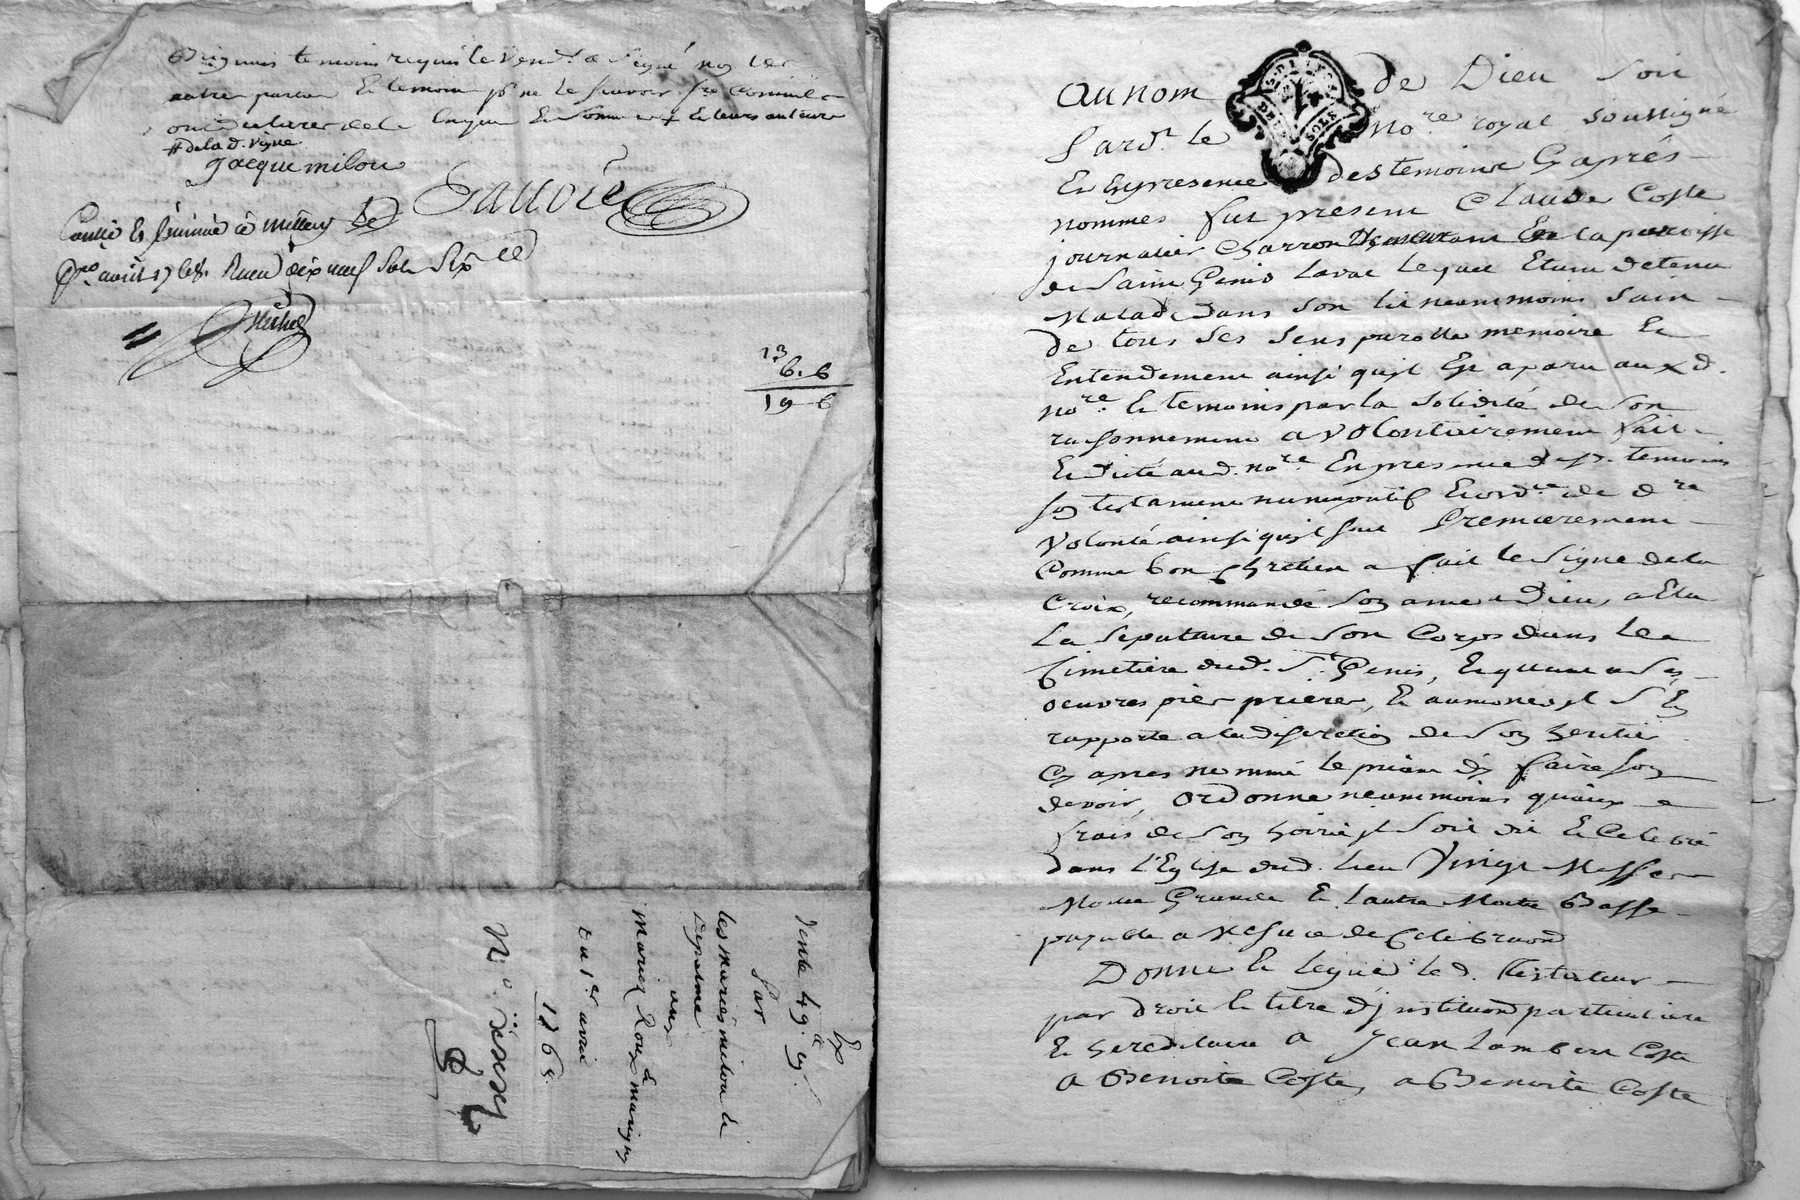 témoins requis le vend.r a signé non les
autres parties Et témoin p.r ne le scavoir
ont declarer de ce Enquis Et sommes Et leurs auteurs
# de la d. vigne
Jacque milou
Contlé Et à millery le
avril 1768. Recu dix neuf sols six
Michel
13
6. 6
19 6
Ex
Vente 49
Par
les Mariés milou de
aux
Mariez Roux de marigny
Du 1er avril
1768.
N.o
au nom de Dieu soit
Pard.t le No.re royal soussigne
Et En presence des temoins Cy aprés
nommes fut present Claude Coste
journalier Charron Demeurant En la paroisse
de Saint Genis Laval lequel Etant detenu
Malade dans son lit neanmoins sain
de tous ses sens parolle memoire Et
Entendement ainsi quil Est aparu aux d.
no.re Et temoins par la solidité de son
raisonnement a volontairement fait
Et dicté aud. no.re En presence desd. temoins
son testament nuncupatif Et ord.ce de d.re
volonté ainsi quil suit Premierement
Comme bon Chretien a fait le signe de la
Croix, recommandé son ame a Dieu, a Elu
La sepulture de son Corps dans le
Cimetiere dud. S.t Genis, Et quant a ses
oeuvres pies prieres, Et aumones il s'En
rapporte a la discretion de son heritier
Cy apres nommé le priant d'y faire son
devoir, ordonne neanmoins quaux
frais de son hoirie il soit dit Et Celebré
dans l'Eglise dud. lieu Vingt Messes
Moitié Grande Et l'autre Moitié Basse
payable a Mesure de Celebration
Donne Et Legue led. Testateur
par droit Et titre d'institution particuliere
Et hereditaire a Jean Lambert Coste
a Benoite Coste, a Benoite Coste